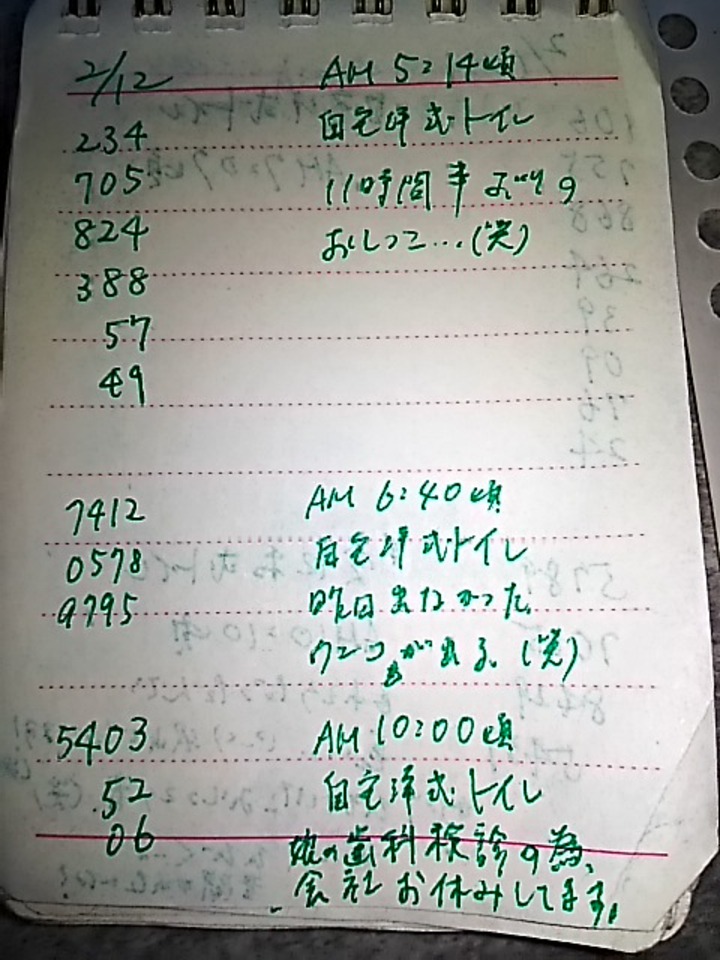 2/12 AM 5:14頃
234 自宅洋式トイレ
705 11時間半ぶりの
824 おしっこ…(笑)
388
57
49
7412 AM 6:40頃
0578 自宅洋式トイレ
9795 昨日出なかった
ウンコが出る。(笑)
5403 AM 10:00頃
52 自宅洋式トイレ
06 娘の歯科検診の為、
会社お休みしてます。